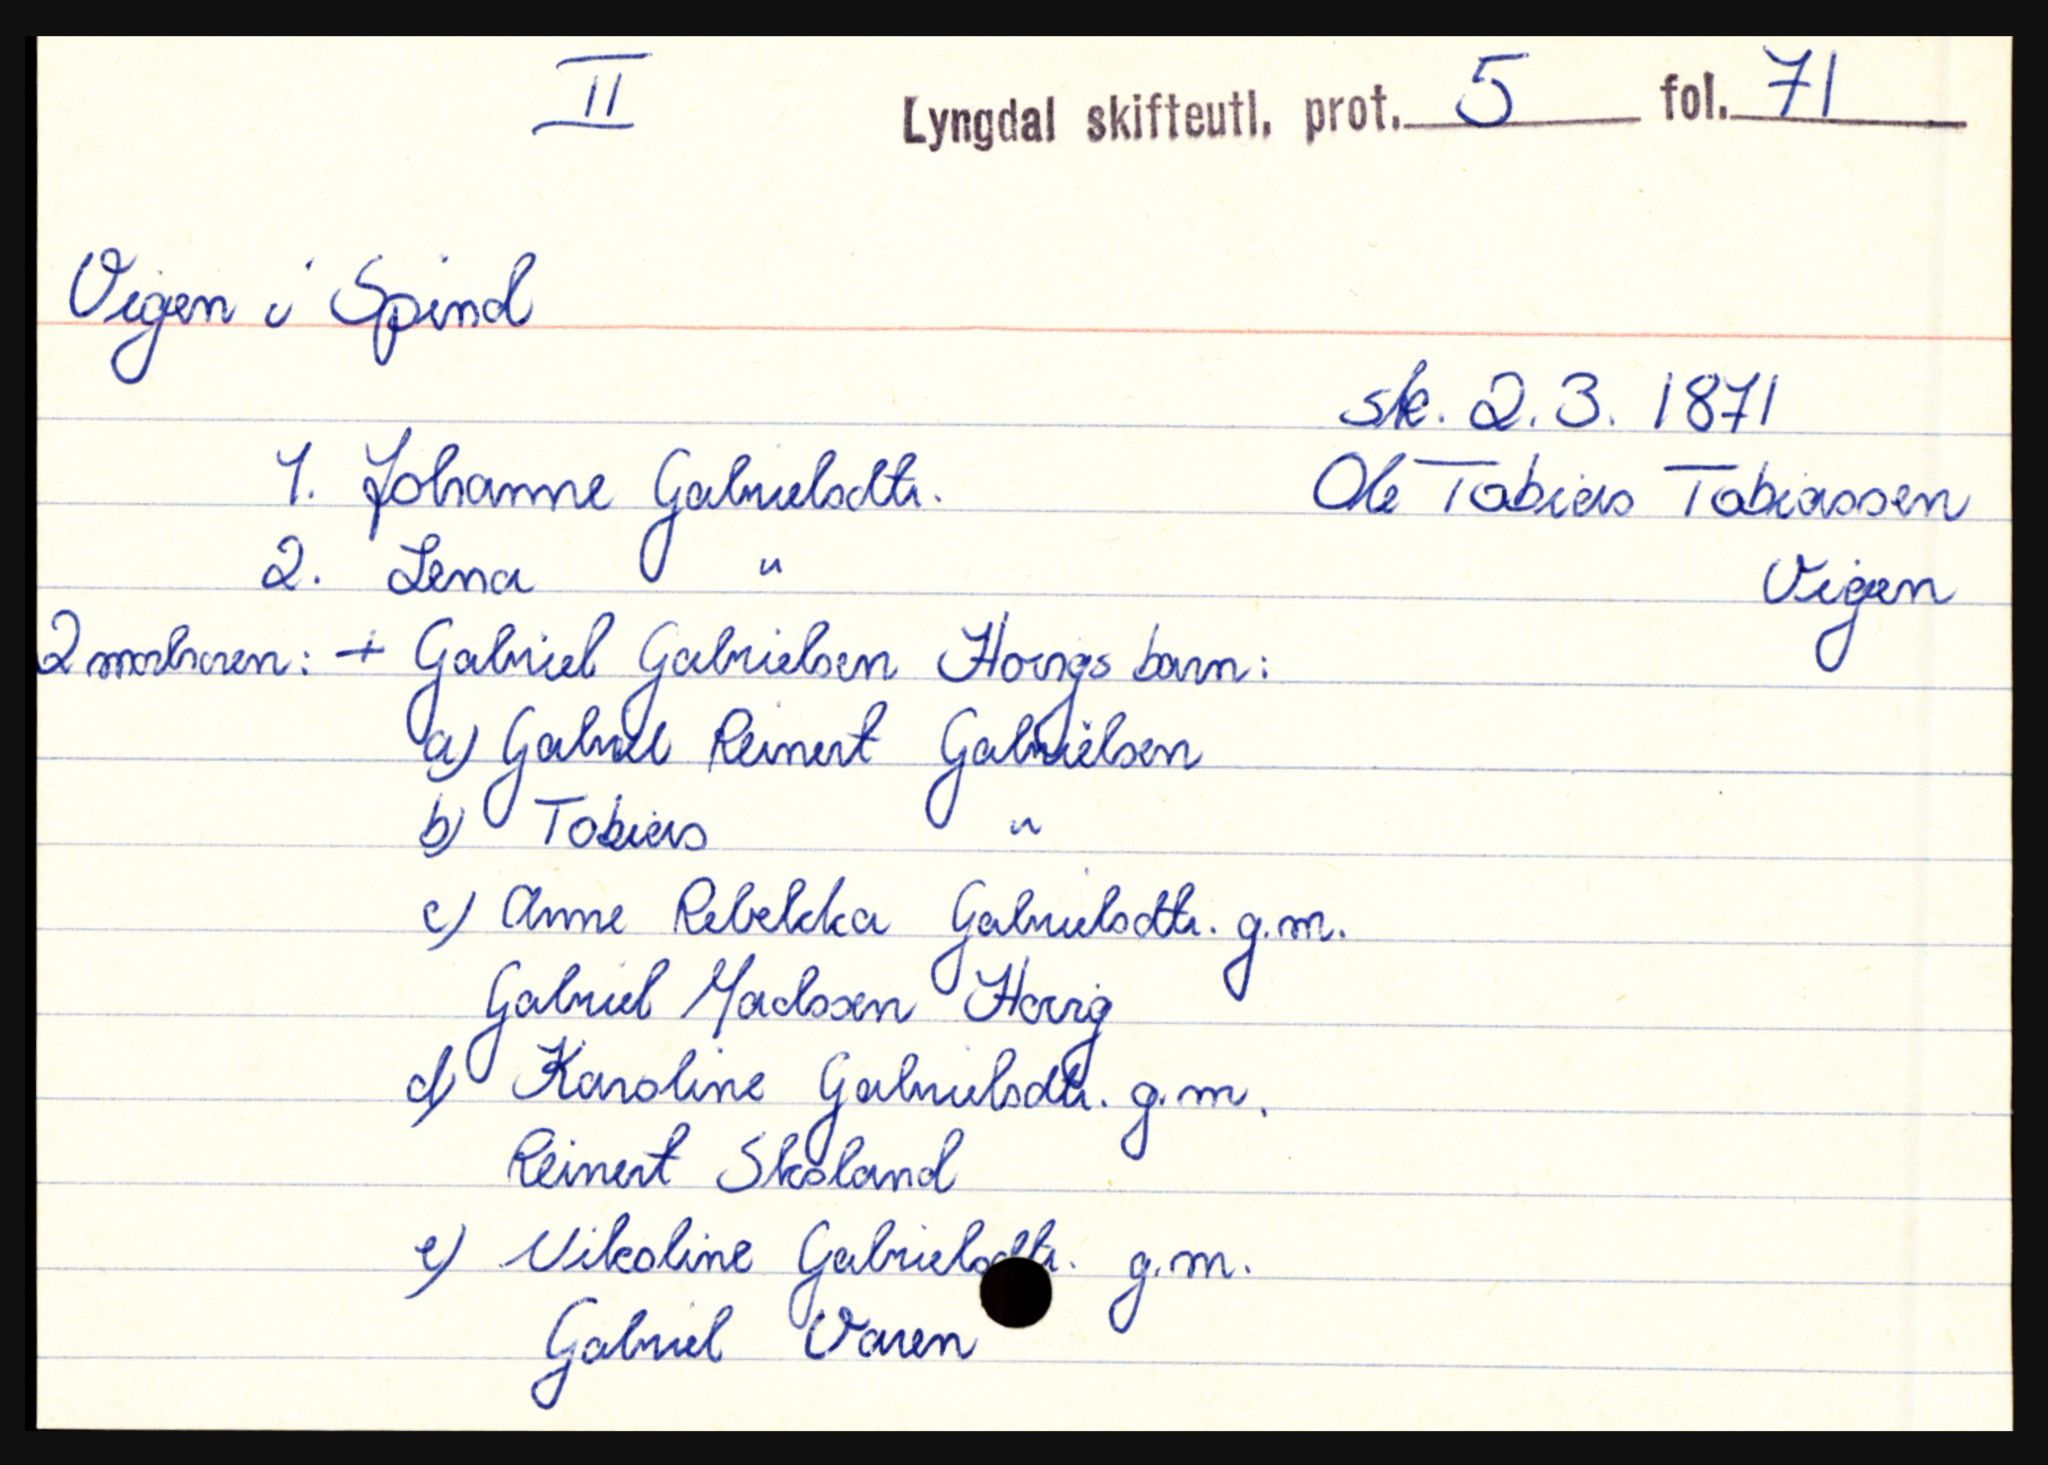 II Lyngdal skifteutl. prot. 5 fol. 71
Vigen i Spind
sk. 2.3. 1871
1. Johanne Gabrielsdtr. Ole Tobias Tobiassen
2. Lena " Vigen
2 morbroren: + Gabriel Gabrielsen Hovigs barn:
a) Gabriel Reinert Gabrielsen
b) Tobias "
c) Anne Rebekka Gabrielsdtr. g.m.
Gabriel Madssen Hovig
d) Karoline Gabrielsdtr. g.m.
Reinert Skoland
e) Nikoline Gabrielsdtr. g.m.
Gabriel Varen